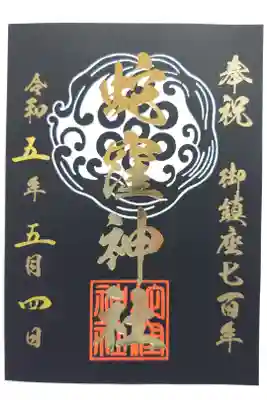 奉祝 御鎮座七百年
蛇窪神社
蛇窪神社
令和五年五月四日